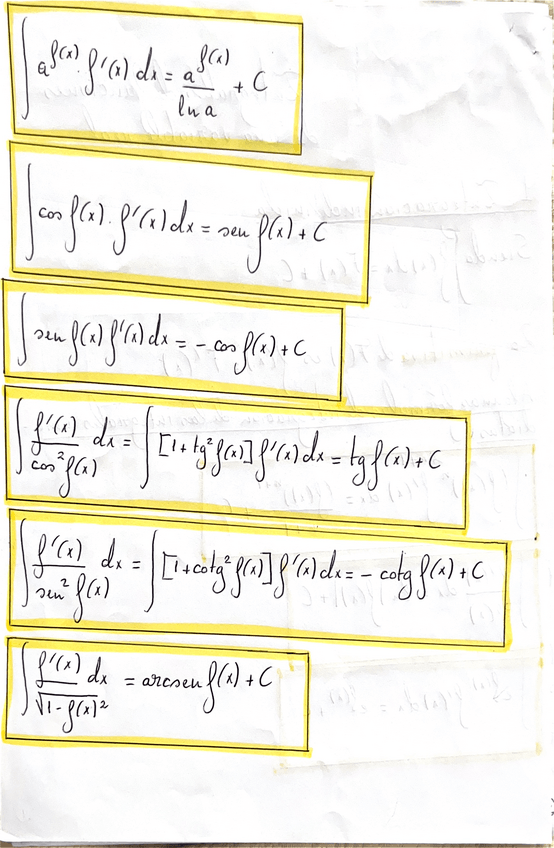 ∫ a^f(x) · f'(x) dx = a^f(x) / ln a + C
∫ cos f(x) · f'(x) dx = sen f(x) + C
∫ sen f(x) f'(x) dx = - cos f(x) + C
∫ f'(x) / cos² f(x) dx = ∫ [1 + tg² f(x)] f'(x) dx = tg f(x) + C
∫ f'(x) / sen² f(x) dx = ∫ [1 + cotg² f(x)] f'(x) dx = - cotg f(x) + C
∫ f'(x) / √1 - f(x)² dx = arcsen f(x) + C